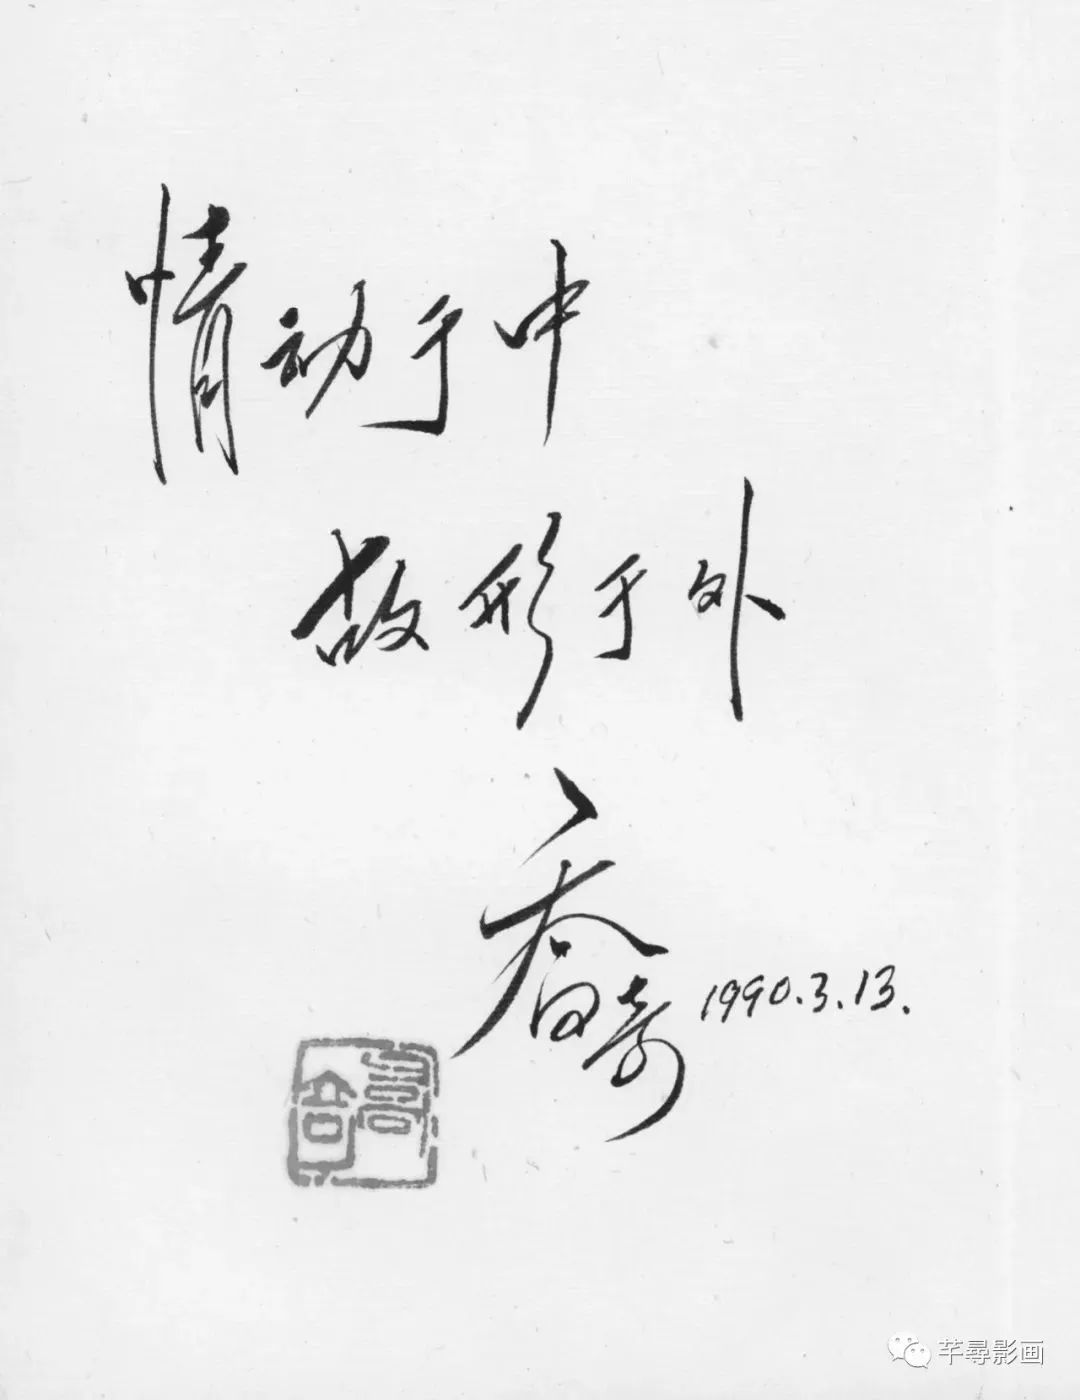 情动于中
故形于外
乔奇 1990.3.13.
芊尋影画